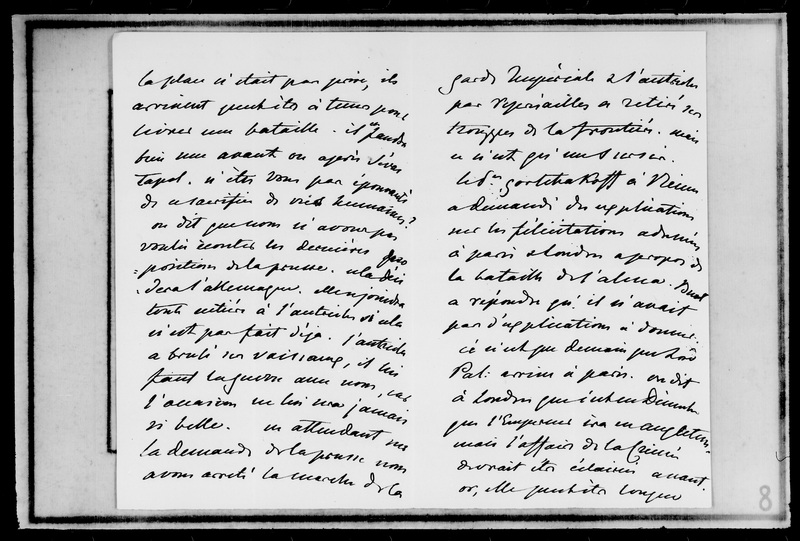 la place n'était pas prise, ils
arrivent peut-être à temps pour
livrer une bataille. il en faudra
bien une avant ou après Sévas
tapol. n'êtes vous pas épouvanté
de ce sacrifice de vies humaines?
on dit que nous n'avons pas
voulu écouter les dernières pro
=positions de la prusse. cela déci
=dera l'allemagne. elle se joindra
toute entière à l'autriche si cela
n'est pas fait déja. l'autriche
a brulé ses vaisseaux, il lui
faut la guerre avec nous, car
l'occasion ne lui sera jamais
si belle. en attendant sur
la demande de la prusse nous
avons arrêté la marche de la
garde Impériale & l'autriche
par represailles a retiré ses
troupes de la frontière. mais
ce n'est qu'un sursis.
le Pce gortchakoff à Vienne
a demandé des explications
sur les félicitations adressées
à paris & londres apropos de
la bataille de l'alma. Buol
a répondu qu'il n'avait
pas d'explications à donner.
ce n'est que demain que Lord
Pal: arrive à paris. on dit
à Londres que c'est en Décembre
que l'Empereur ira en angleterre
mais l'affaire de la Crimée
devrait être éclaircie avant.
or, elle peut être longue
8